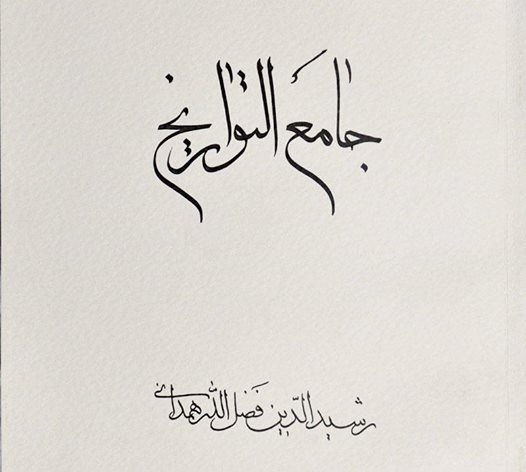 جامع التواریخ
رشیدالدین فضل الله همدانی